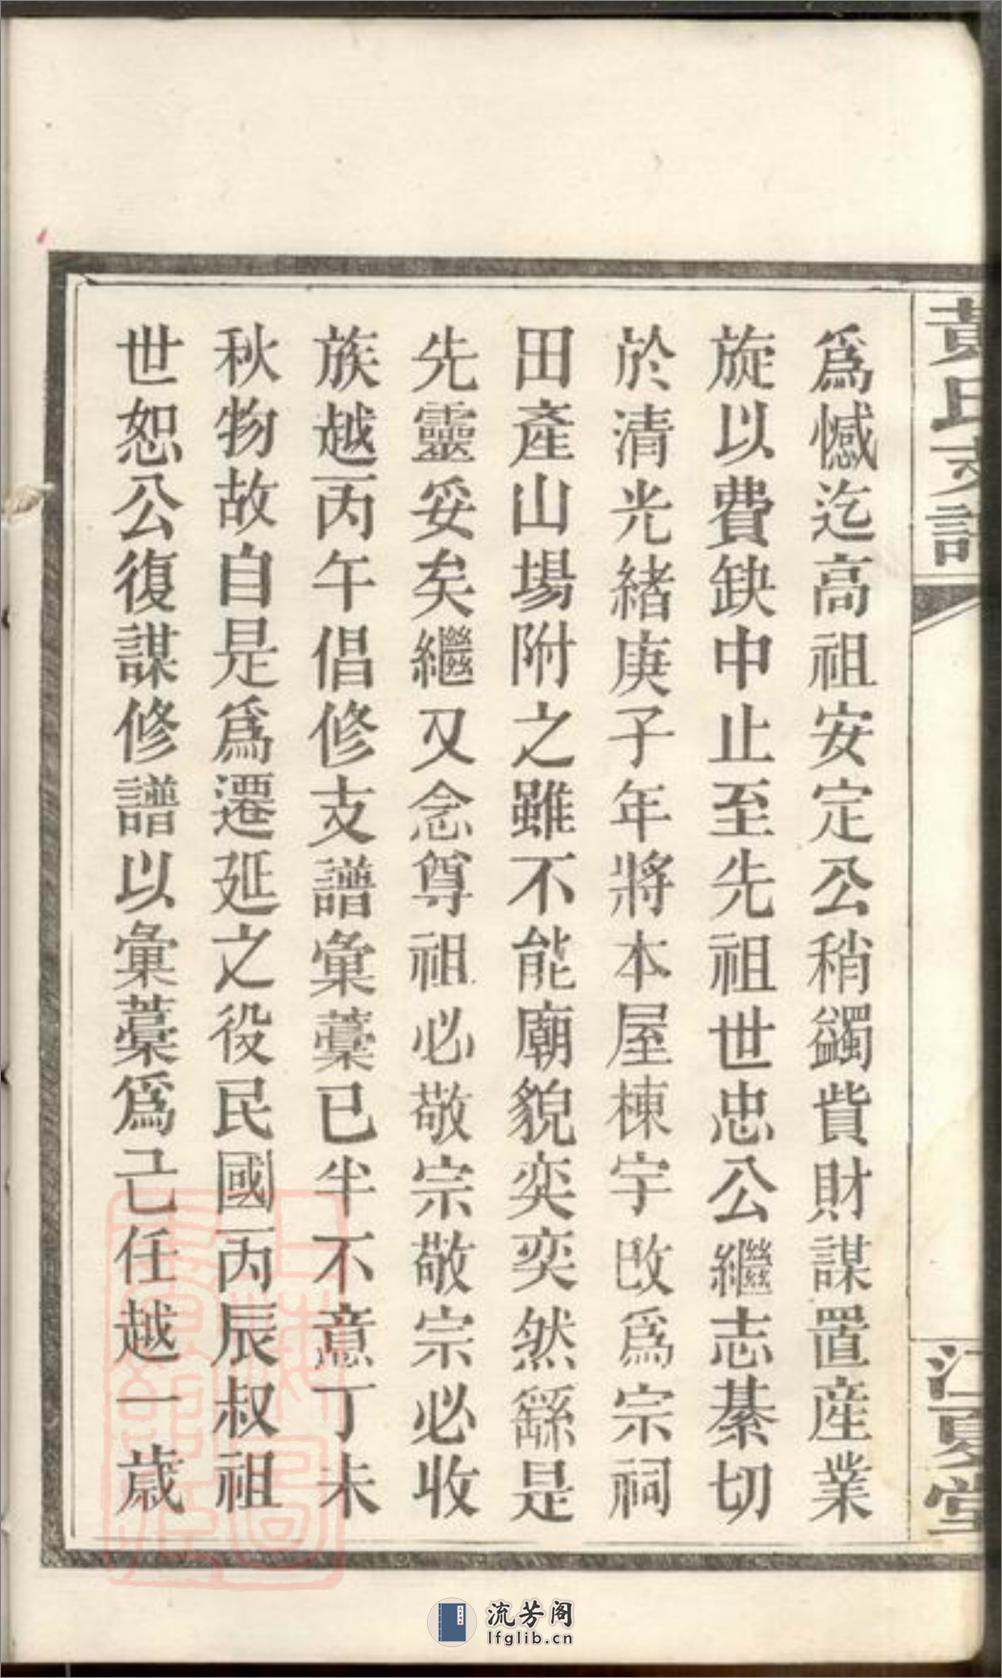 黃氏支譜
江夏堂
爲憾迄高祖安定公稍蠲貲財謀置産業
旋以費缺中止至先祖世忠公繼志綦切
於清光緒庚子年將本屋棟宇改爲宗祠
田產山場附之雖不能廟貌奕奕然繇是
先靈妥矣繼又念尊祖必敬宗敬宗必收
族越丙午倡修支譜彙藁已半不意丁未
秋物故自是爲遷延之役民國丙辰叔祖
世恕公復謀修譜以彙藁爲己任越一歲
流芳阁
lfglib.cn